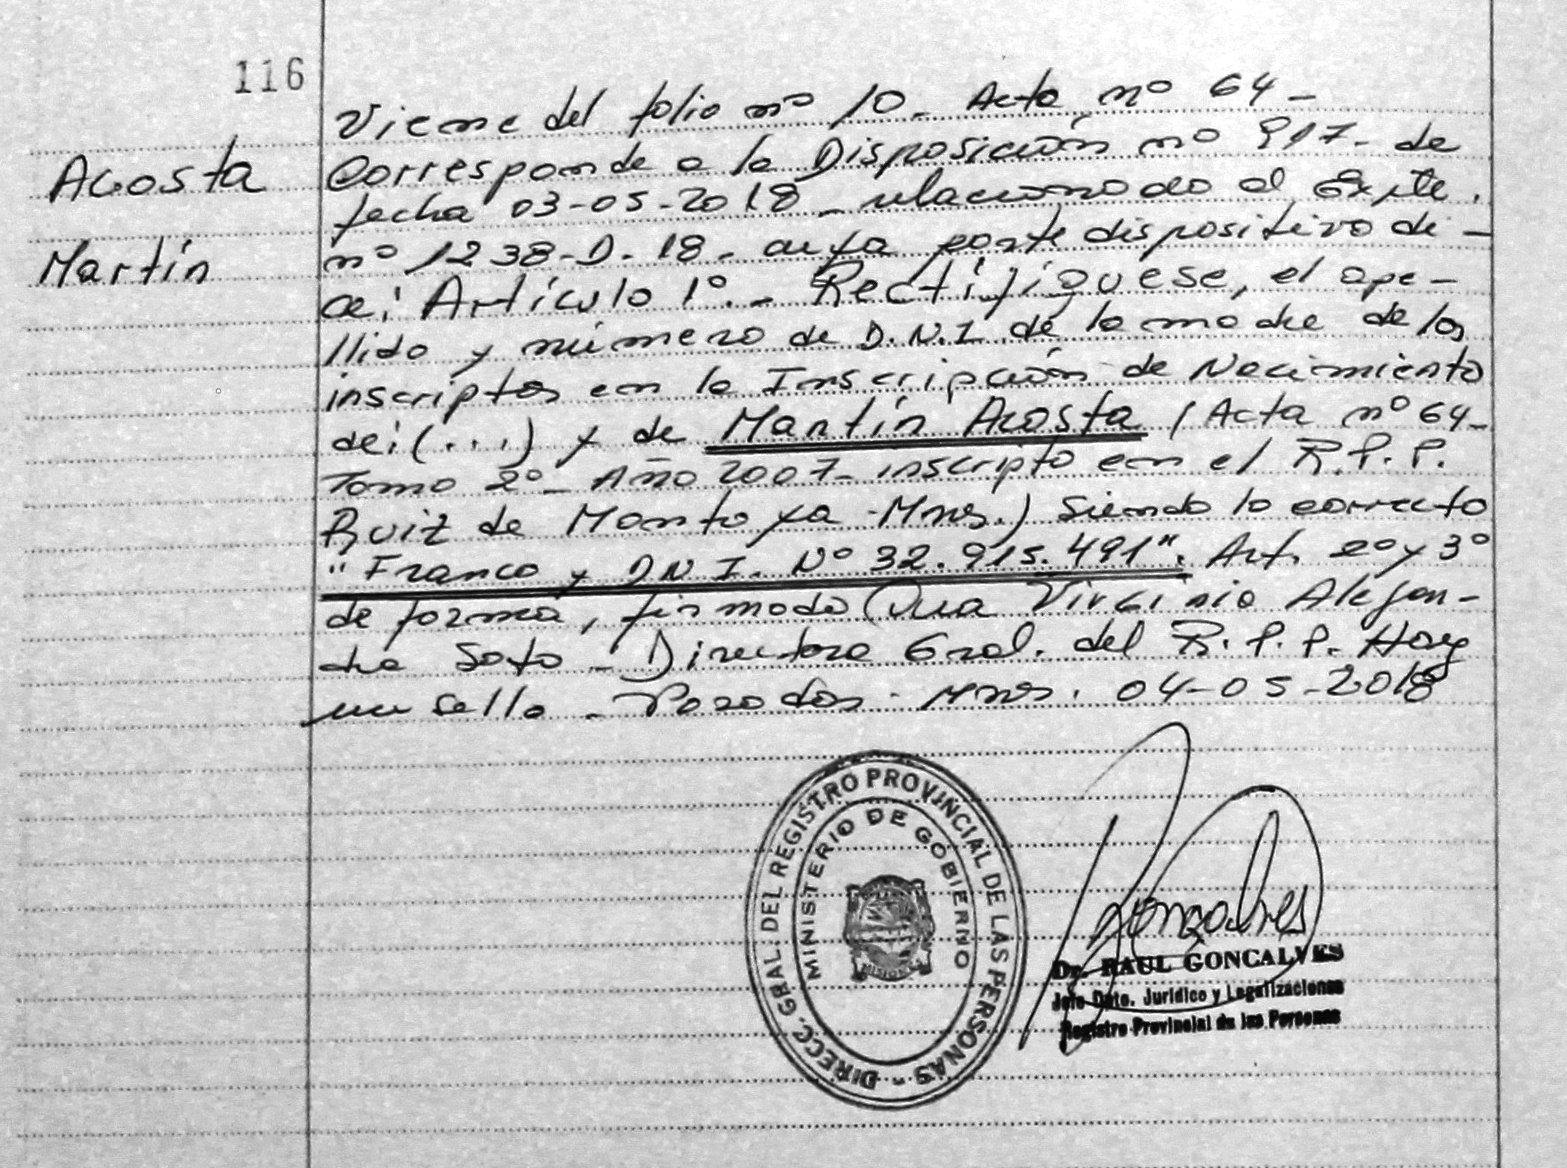 116
Acosta
Martín
Viene del folio nº 10- Acta nº 64-
Corresponde a la Disposición nº 917- de
fecha 03-05-2018- relacionado al Expte.
nº 1238-D-18- cuya parte dispositiva di-
ce: Artículo 1º.- Rectifíquese, el ape-
llido y número de D.N.I de la madre de los
inscriptos en la Inscripción de Nacimiento
de: (...) y de Martín Acosta (Acta nº 64-
Tomo 2º- Año 2007- inscripto en el R.P.P.
Ruiz de Montoya-Mnes.) Siendo lo correcto
"Franco y D N I. Nº 32.915.491". Art. 2º y 3º
de forma, firmado Dra Virginia Alejan-
dra Soto - Directora Gral. del R.P.P. Hay
un sello - Posadas - Mnes. 04-05-2018
DIRECC. GRAL. DEL REGISTRO PROVINCIAL DE LAS PERSONAS -
MINISTERIO DE GOBIERNO
MISIONES
Gonçalves
Dr. RAUL GONCALVES
Jefe Dpto. Jurídico y Legalizaciones
Registro Provincial de las Personas